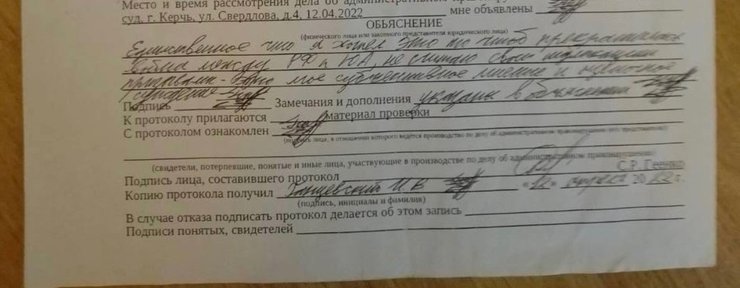 Место и время рассмотрения дела об административном
суд, г. Керчь, ул. Свердлова, д.4, 12.04.2022 мне объявлены
ОБЪЯСНЕНИЕ
(физического лица или законного представителя юридического лица)
Единственное что я хотел это то чтоб прекратилась
война между РФ и УА, не считаю свои публикации
это мое субъективное мнение и оценочное
суждение
Подпись Замечания и дополнения указаны в объяснении
К протоколу прилагаются материал проверки
С протоколом ознакомлен
(подпись лица, в отношении которого ведётся производство по делу об административном правонарушении его представителя)
(свидетели, потерпевшие, понятые и иные лица, участвующие в производстве по делу об административном правонарушении)
Подпись лица, составившего протокол С.Р.
Копию протокола получил И В «12» апреля 2022г.
(подпись, инициалы и фамилия)
В случае отказа подписать протокол делается об этом запись
Подписи понятых, свидетелей